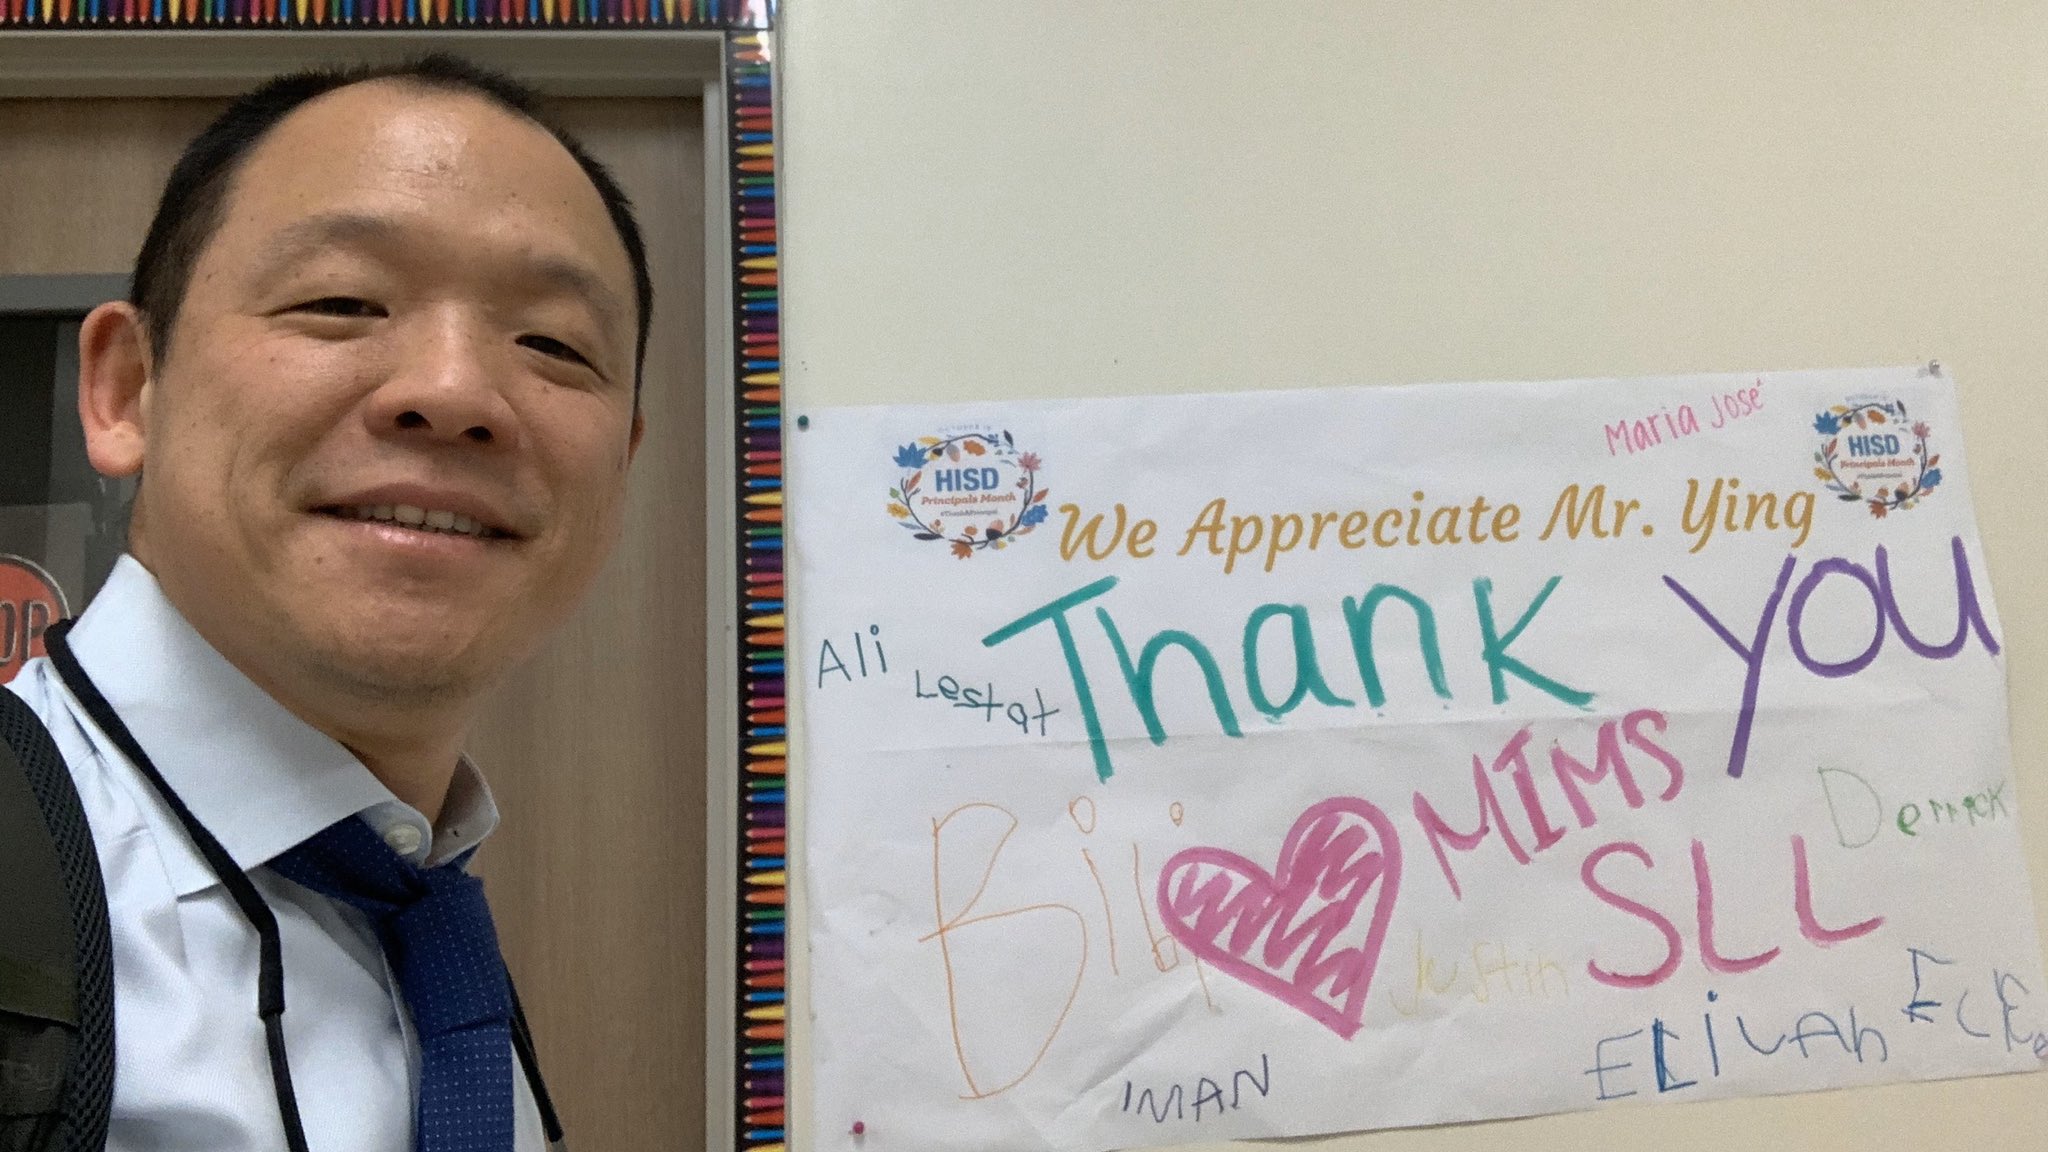 Maria José
HISD
Principals Month
HISD
Principals Month
We Appreciate Mr. Ying
Thank you
Ali
Lestat
MIMS
Derrick
SLL
Justin
ELiJAh
IMAN